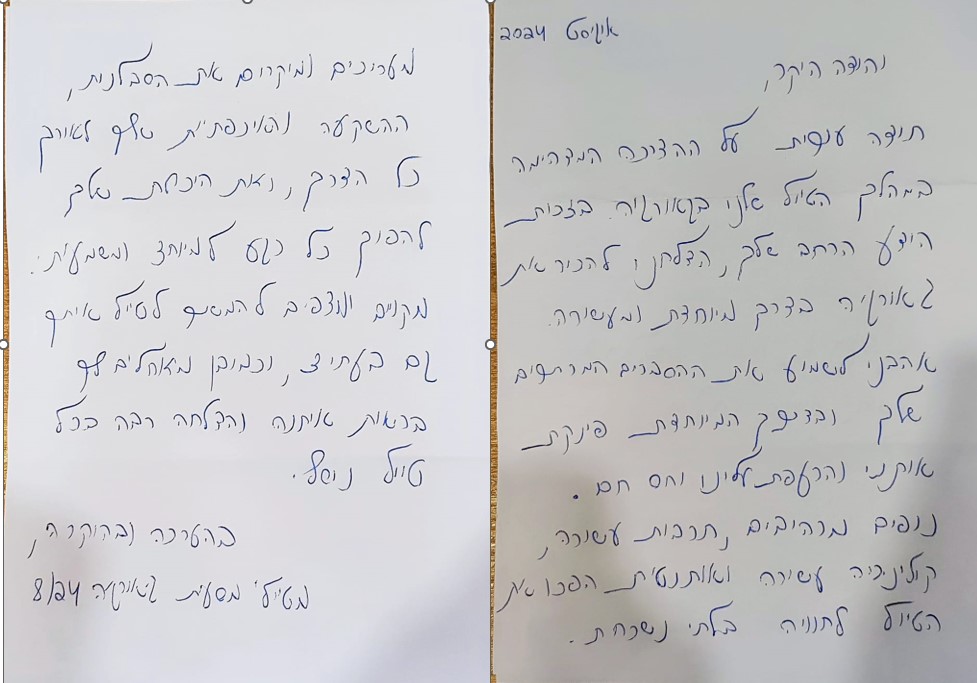 אוגוסט 2024
יהודה היקר,
תודה ענקית על ההדרכה המדהימה
במהלך הטיול שלנו בגאורגיה. בזכות
הידע הרחב שלך, הצלחנו להכיר את
גאורגיה בדרך מיוחדת ומעשירה.
אהבנו לשמוע את ההסברים המרתקים
שלך ובדרכך המיוחדת פינקת
אותנו והרעפת עלינו יחס חם.
נופים מרהיבים, תרבות עשירה,
קולינריה עשירה ואותנטית הפכו את
הטיול לחוויה בלתי נשכחת.
מעריכים ומוקירים את הסבלנות,
ההשקעה והאינפתיות שלך לאורך
כל הדרך, ואת היכולת שלך
להפוך כל רגע למיוחד ומשמעותי.
מקווים ומצפים להמשיך לטייל איתך
גם בעתיד, וכמובן מאחלים לך
בריאות איתנה והצלחה רבה בכל
טיול נוסף.
בהערכה ובהוקרה,
מטיילי מסעות גאורגיה 8/24